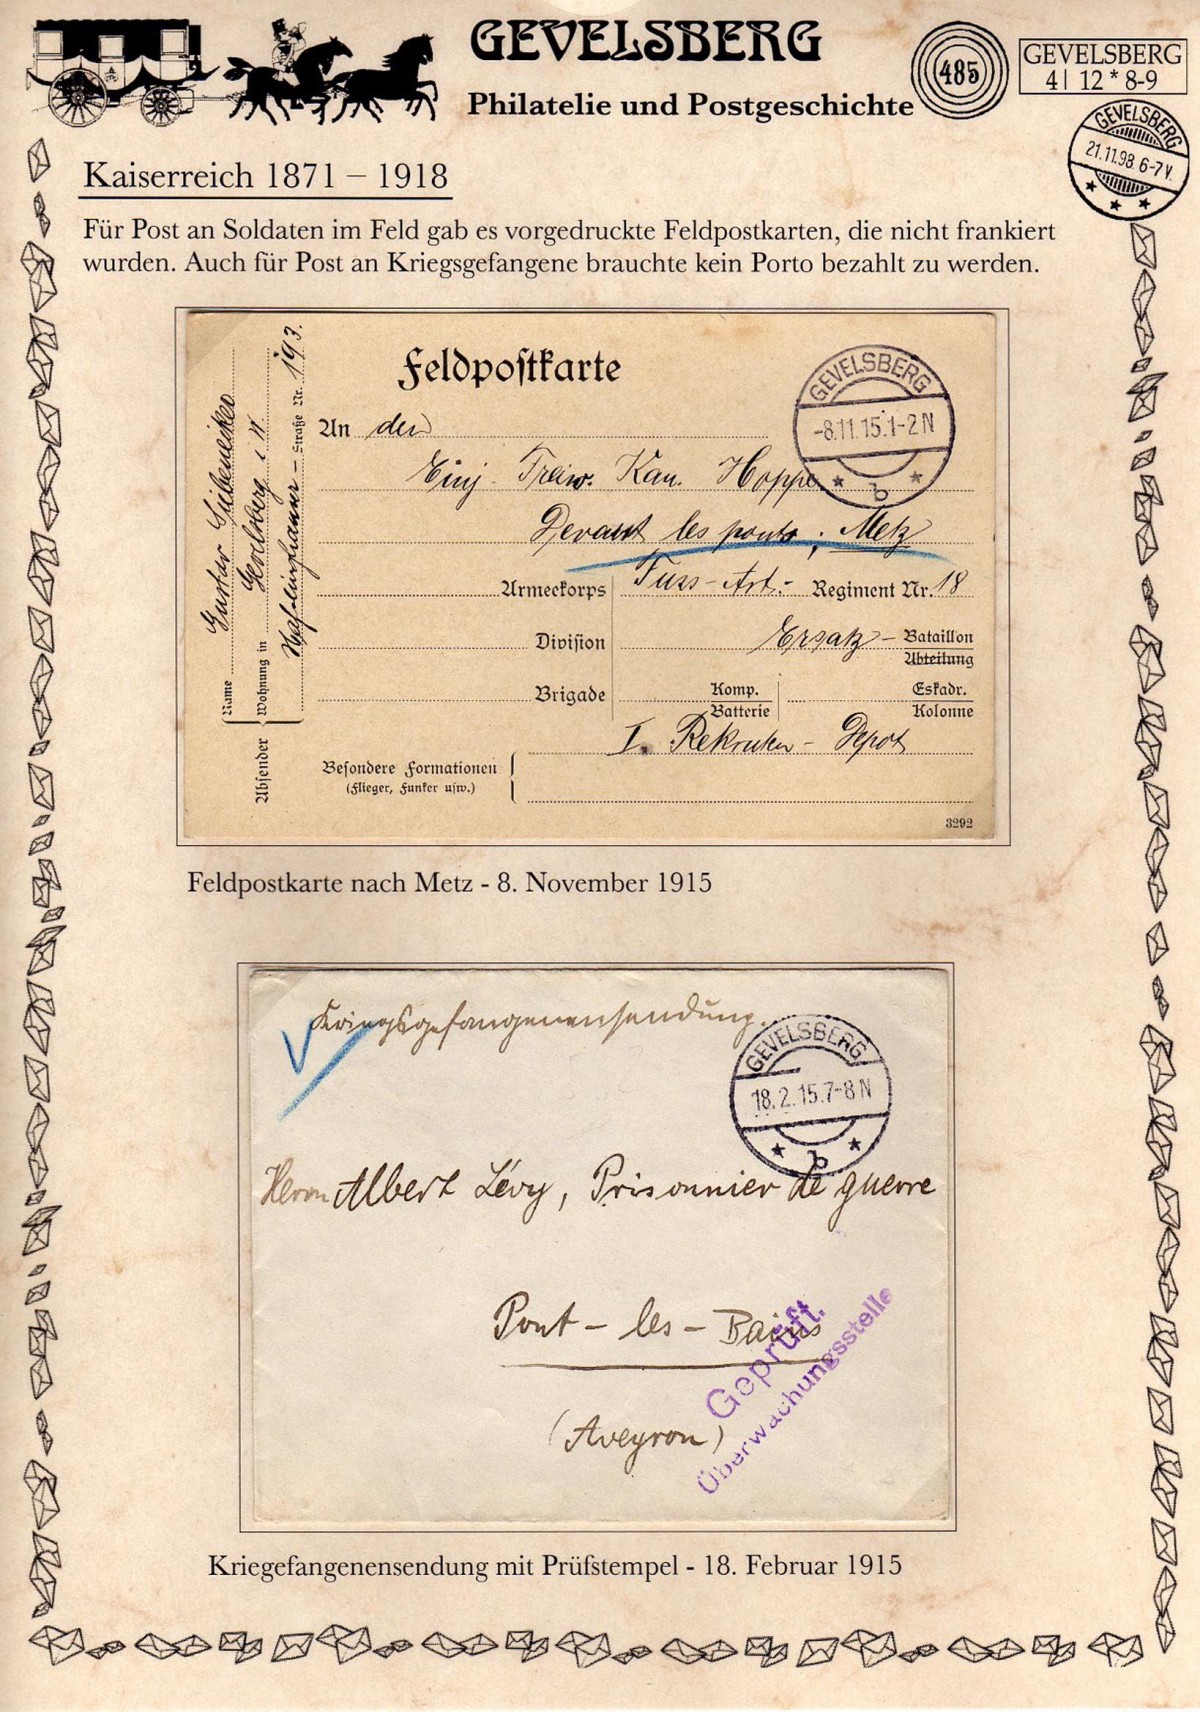 GEVELSBERG
Philatelie und Postgeschichte
485
GEVELSBERG
4| 12 * 8-9
GEVELSBERG
21.11.98 6-7V.
Kaiserreich 1871 – 1918
Für Post an Soldaten im Feld gab es vorgedruckte Feldpostkarten, die nicht frankiert
wurden. Auch für Post an Kriegsgefangene brauchte kein Porto bezahlt zu werden.
Feldpostkarte
GEVELSBERG
-8.11.15.1-2N
b
An den
Einj. Freiw. Kan. Hoppe
Devant les ponts, Metz
Armeekorps Fuss-Art.- Regiment Nr. 18
Division Ersatz- Bataillon
Abteilung
Brigade Komp. Eskadr.
Batterie Kolonne
I. Rekruten-Depot
Besondere Formationen
(Flieger, Funker usw.)
3292
Absender
Name Gustav
Wohnung in Gevelsberg i. W.
Straße Nr. 193.
Feldpostkarte nach Metz - 8. November 1915
Kriegsgefangenensendung.
GEVELSBERG
18.2.15.7-8N
b
Herrn Albert Lévy, Prisonnier de guerre
Pont-les-Bains
(Aveyron)
Geprüft.
Überwachungsstelle
Kriegefangenensendung mit Prüfstempel - 18. Februar 1915